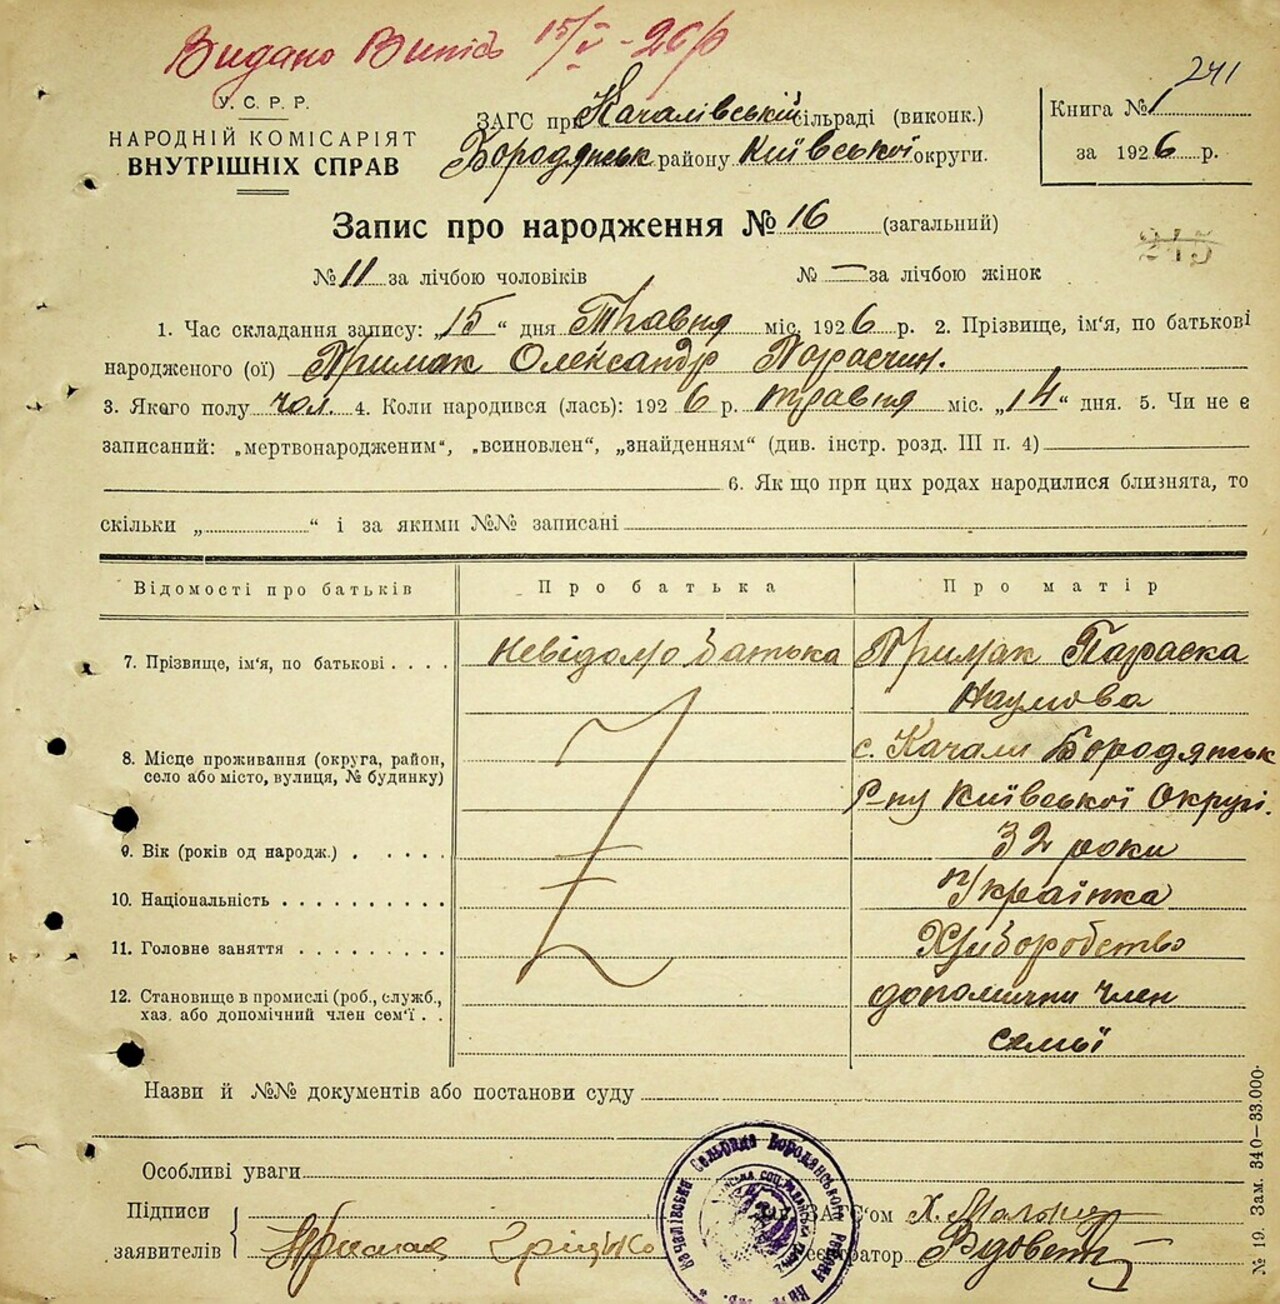 Видано Випісь 15/V - 26 р
241
У. С. Р. Р.
НАРОДНІЙ КОМІСАРІЯТ
ВНУТРІШНІХ СПРАВ
ЗАГС при Качалівській сільраді (виконк.)
Бородянськ району Київської округи.
Книга № 1
за 1926 р.
Запис про народження № 16 (загальний)
215
№ 11 за лічбою чоловіків № — за лічбою жінок
1. Час складання запису: „15“ дня Травня міс. 1926 р. 2. Прізвище, ім'я, по батькові
народженого (ої) Примак Олександр Парасчин.
3. Якого полу чол. 4. Коли народився (лась): 1926 р. травня міс. „14“ дня. 5. Чи не є
записаний: „мертвонародженим“, „всиновлен“, „знайденням“ (див. інстр. розд. III п. 4)
6. Як що при цих родах народилися близнята, то
скільки „ “ і за якими №№ записані
Відомості про батьків Про батька Про матір
7. Прізвище, ім'я, по батькові . . . . Невідомо батька Примак Параска
Наумова
8. Місце проживання (округа, район, село або місто, вулиця, № будинку) с. Качали Бородянськ
Р-ну Київської Округі.
9. Вік (років од народж.) . . . . . 32 роки
10. Національність . . . . . . . . . . Українка
11. Головне заняття . . . . . . . . . Хліборобство
12. Становище в промислі (роб., служб., хаз. або допомічний член сем'ї . . допомічни член
семьї
Назви й №№ документів або постанови суду
Особливі уваги
Підписи
заявителів Примак Гріцько
ЗАГС'ом Х.
Реєстратор
Качалівська Сельрада Бородянського району
№ 19. Зам. 340—33.000.